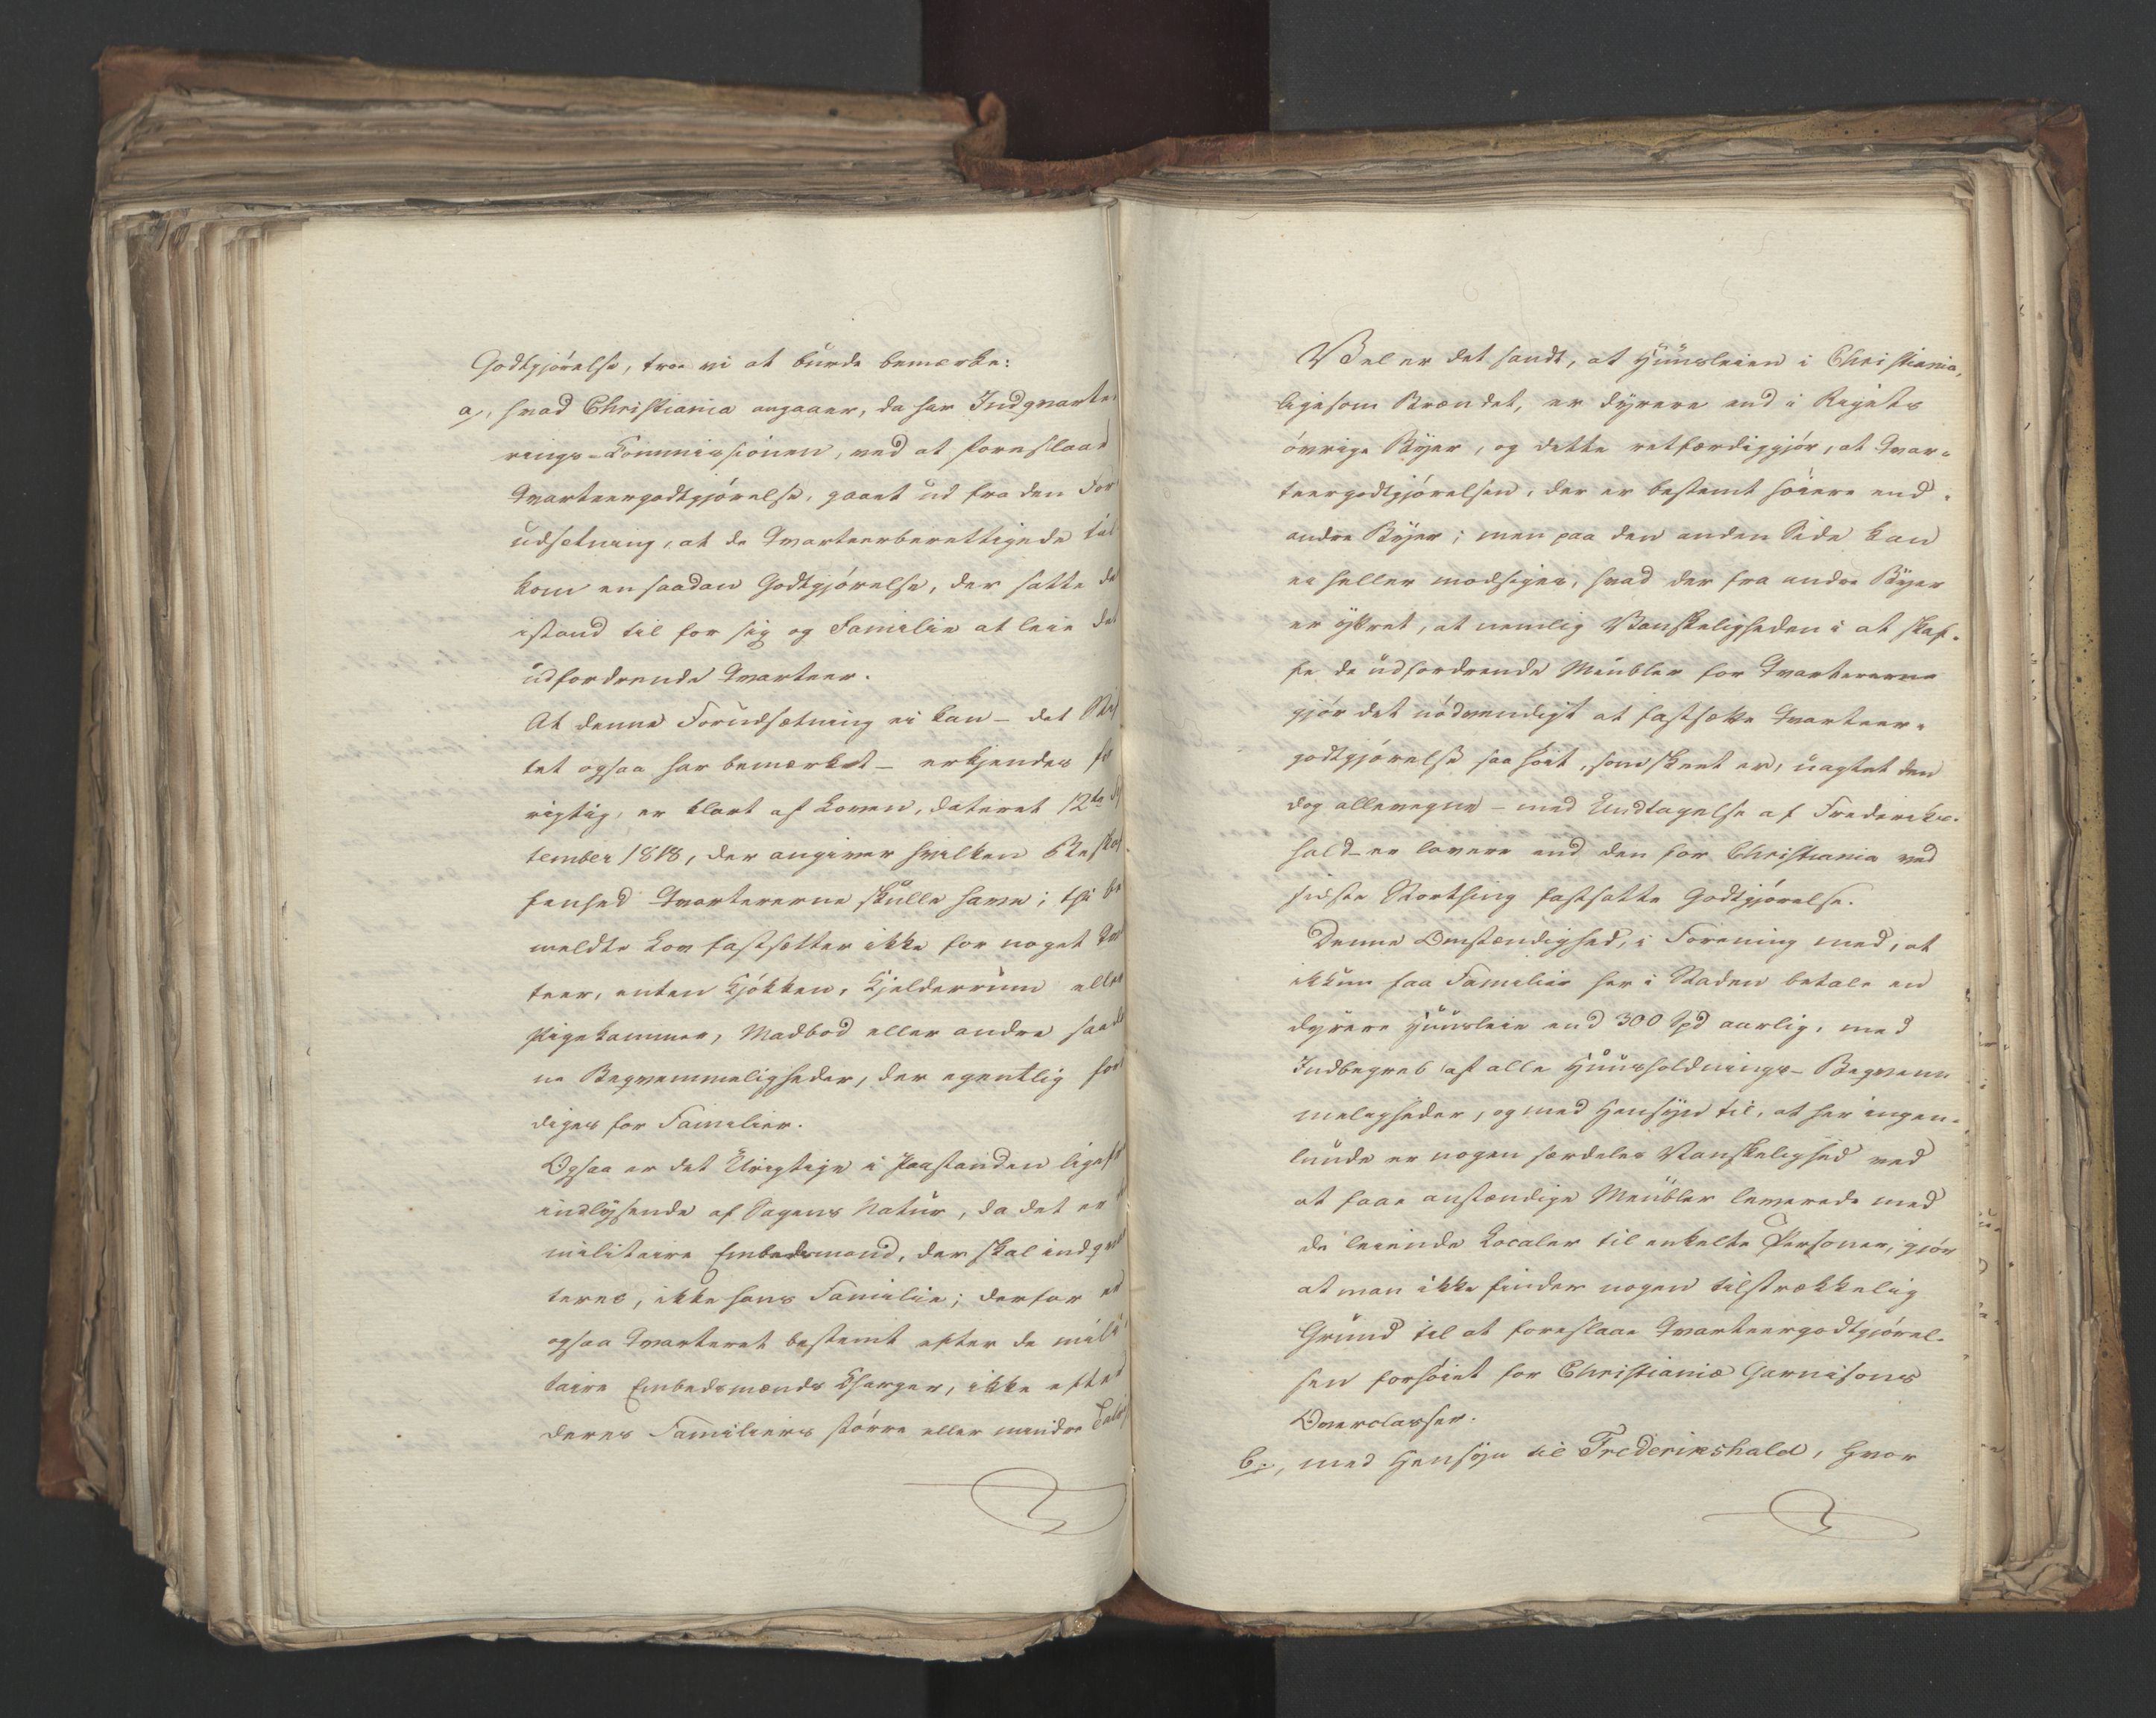 Godtgjörelse, troe vi at burde bemærke:
a, hvad Christiania angaaer, da har Indqvarte-
rings-Commissionen, ved at foreslaae
Qvarteergodtgjörelse, gaaet ud fra den For
udsetning, at de Qvarteerberettigede til
kom en saadan Godtgjörelse, der satte de
istand til for sig og Familie at leie det
udfordrende Qvarteer.
At denne Forudsætning ei kan - det
tet ogsaa har bemærket - erkjendes for
rigtig, er klart af Loven, dateret 12te Sep
tember 1818, der angiver hvilken Beskaf
fenhed Qvartererne skulle have; thi be
meldte Lov fastsætter ikke for noget Qvar
teer, enten Kjökken, Kjelderrum eller
Pigekammer, Madbod eller andre saada
ne Beqvemmeligheder, der egentlig for
diges for Familier.
Ogsaa er det Urigtige i Paastanden ligefr
indlysende af Sagens Natur, da det er
militaire Embedsmand, der skal indqvar
teres, ikke hans Familie; derfor er
ogsaa Qvarteret bestemt efter de mili
taire Embedsmænds Charger, ikke efter
deres Familiers större eller mindre Talrig
Vel er det sandt, at Huusleien i Christiania,
ligesom Brændet, er dyrere end i Rigets
övrige Byer, og dette retfærdiggjör, at Qvar-
teergodtgjörelsen, der er bestemt höiere end i
andre Byer; men paa den anden Side kan
ei heller modsiges, hvad der fra andre Byer
er yttret, at nemlig Vanskeligheden i at skaf-
fe de udfordrende Meubler for Qvartererne
gjör det nödvendigt at fastsætte Qvarteer-
godtgjörelse saa höit, som skeet er, uagtet den
dog allevegne - med Undtagelse af Frederiks-
hald - er lavere end den for Christiania ved
sidste Storthing fastsatte Godtgjörelse.
Denne Omstændighed, i Forening med, at
ikkun faa Familier her i Staden betale en
dyrere Huusleie end 300 Spd aarlig, med
Indbegreb af alle Huusholdnings-Beqvem
meligheder, og med Hensyn til, at her ingen-
lunde er nogen særdeles Vanskelighed ved
at faae anstændige Meubler leverede med
de leiende Localer til enkelte Personer, gjör
at man ikke finder nogen tilstrækkelig
Grund til at foreslaae Qvarteergodtgjörel-
sen forhöiet for Christiania Garnisons
Overclasser.
b., med Hensyn til Frederikshald, hvor